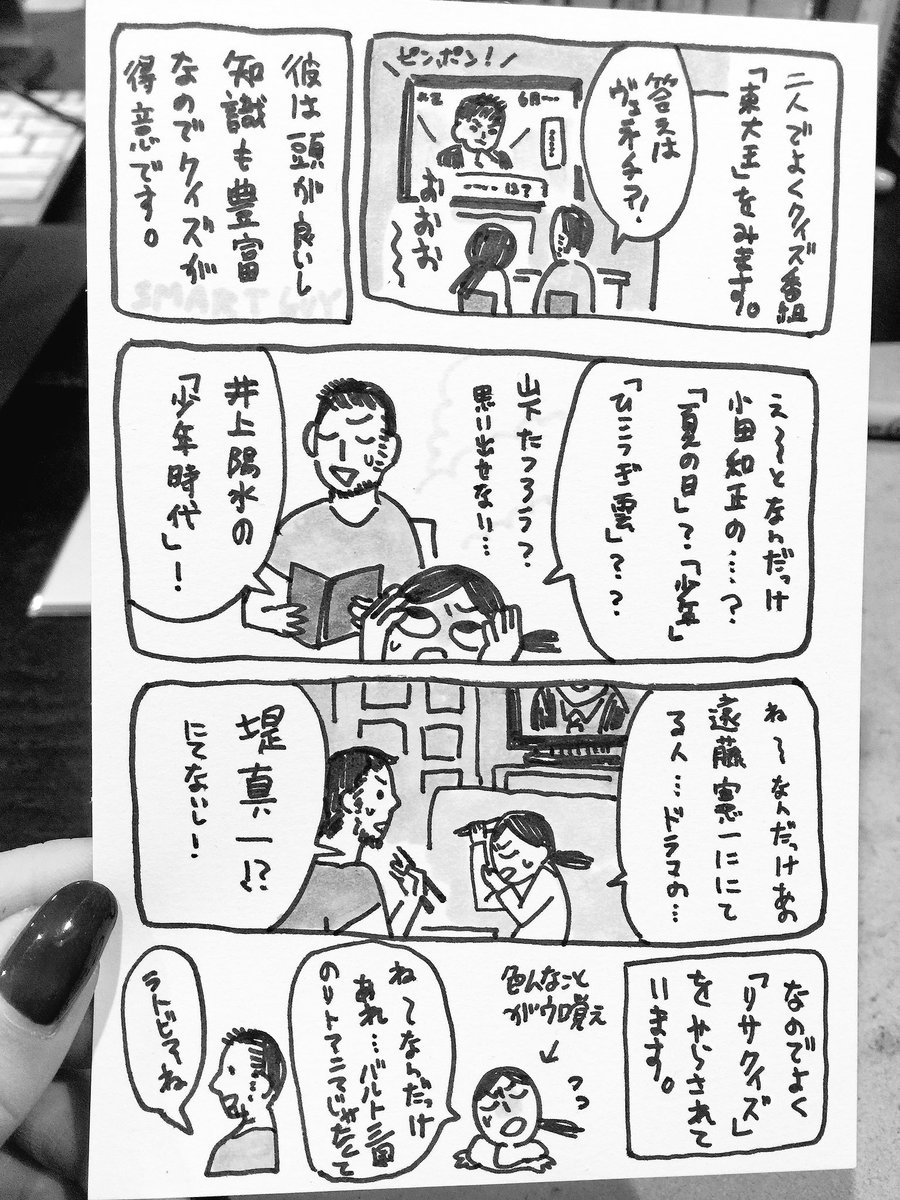 二人でよくクイズ番組
「東大王」をみます。
答えは
ヴェネチア!
ピンポン!
おおお
彼は頭が良いし
知識も豊富
なのでクイズが
得意です。
SMART GUY
え〜〜となんだっけ
小田和正の……?
「夏の日」?「少年」
「ひこうき雲」??
山下たつろう?
思い出せない…
井上陽水の
「少年時代」!
ね〜なんだっけあの
遠藤憲一ににて
る人…ドラマの…
堤真一!?
にてないし!
なのでよく
「リサクイズ」
をやらされて
います。
色んなこと
がウロ覚え
ねてなんだっけ
あれ…バルト三国
のリトアニアじゃなくて
ラトビアね